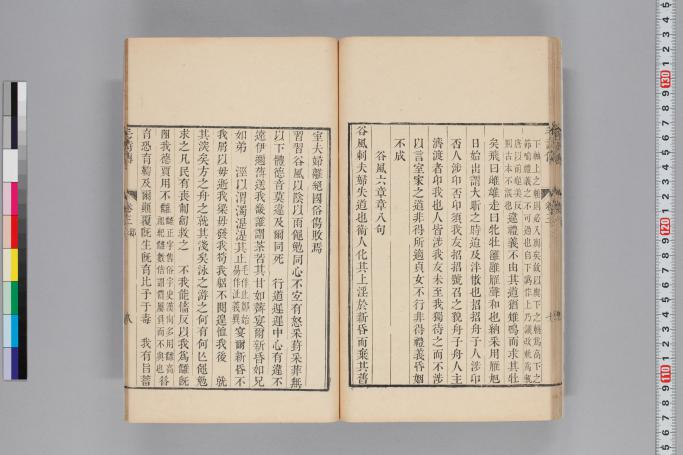 違禮義不由其道猶雉鳴而求其牡
矣飛曰雌雄走曰牝牡雝雝雁聲和也納采用雁旭
日始出謂大昕之時迨及泮散也招招舟子人涉卬
否人涉卬否卬須我友招招號召之貌舟子舟人主
濟渡者卬我也人皆涉我友未至我獨待之而不涉
以言室家之道非得所適貞女不行非得禮義昏姻
不成
谷風六章章八句
谷風刺夫婦失道也衞人化其上淫於新昏而棄其舊
室夫婦離絕國俗傷敗焉
習習谷風以陰以雨黽勉同心不宜有怒采葑采菲無
以下體德音莫違及爾同死 行道遲遲中心有違不
遠伊邇薄送我畿誰謂荼苦其甘如薺宴爾新昏如兄
如弟 涇以渭濁湜湜其止宴爾新昏不
我屑以毋逝我梁毋發我笱我躬不閱遑恤我後 就
其深矣方之舟之就其淺矣泳之游之何有何亡黽勉
求之凡民有喪匍匐救之 不我能慉反以我爲讎旣
阻我德賈用不讎
育恐育鞫及爾顛覆旣生旣育比予于毒 我有旨蓄